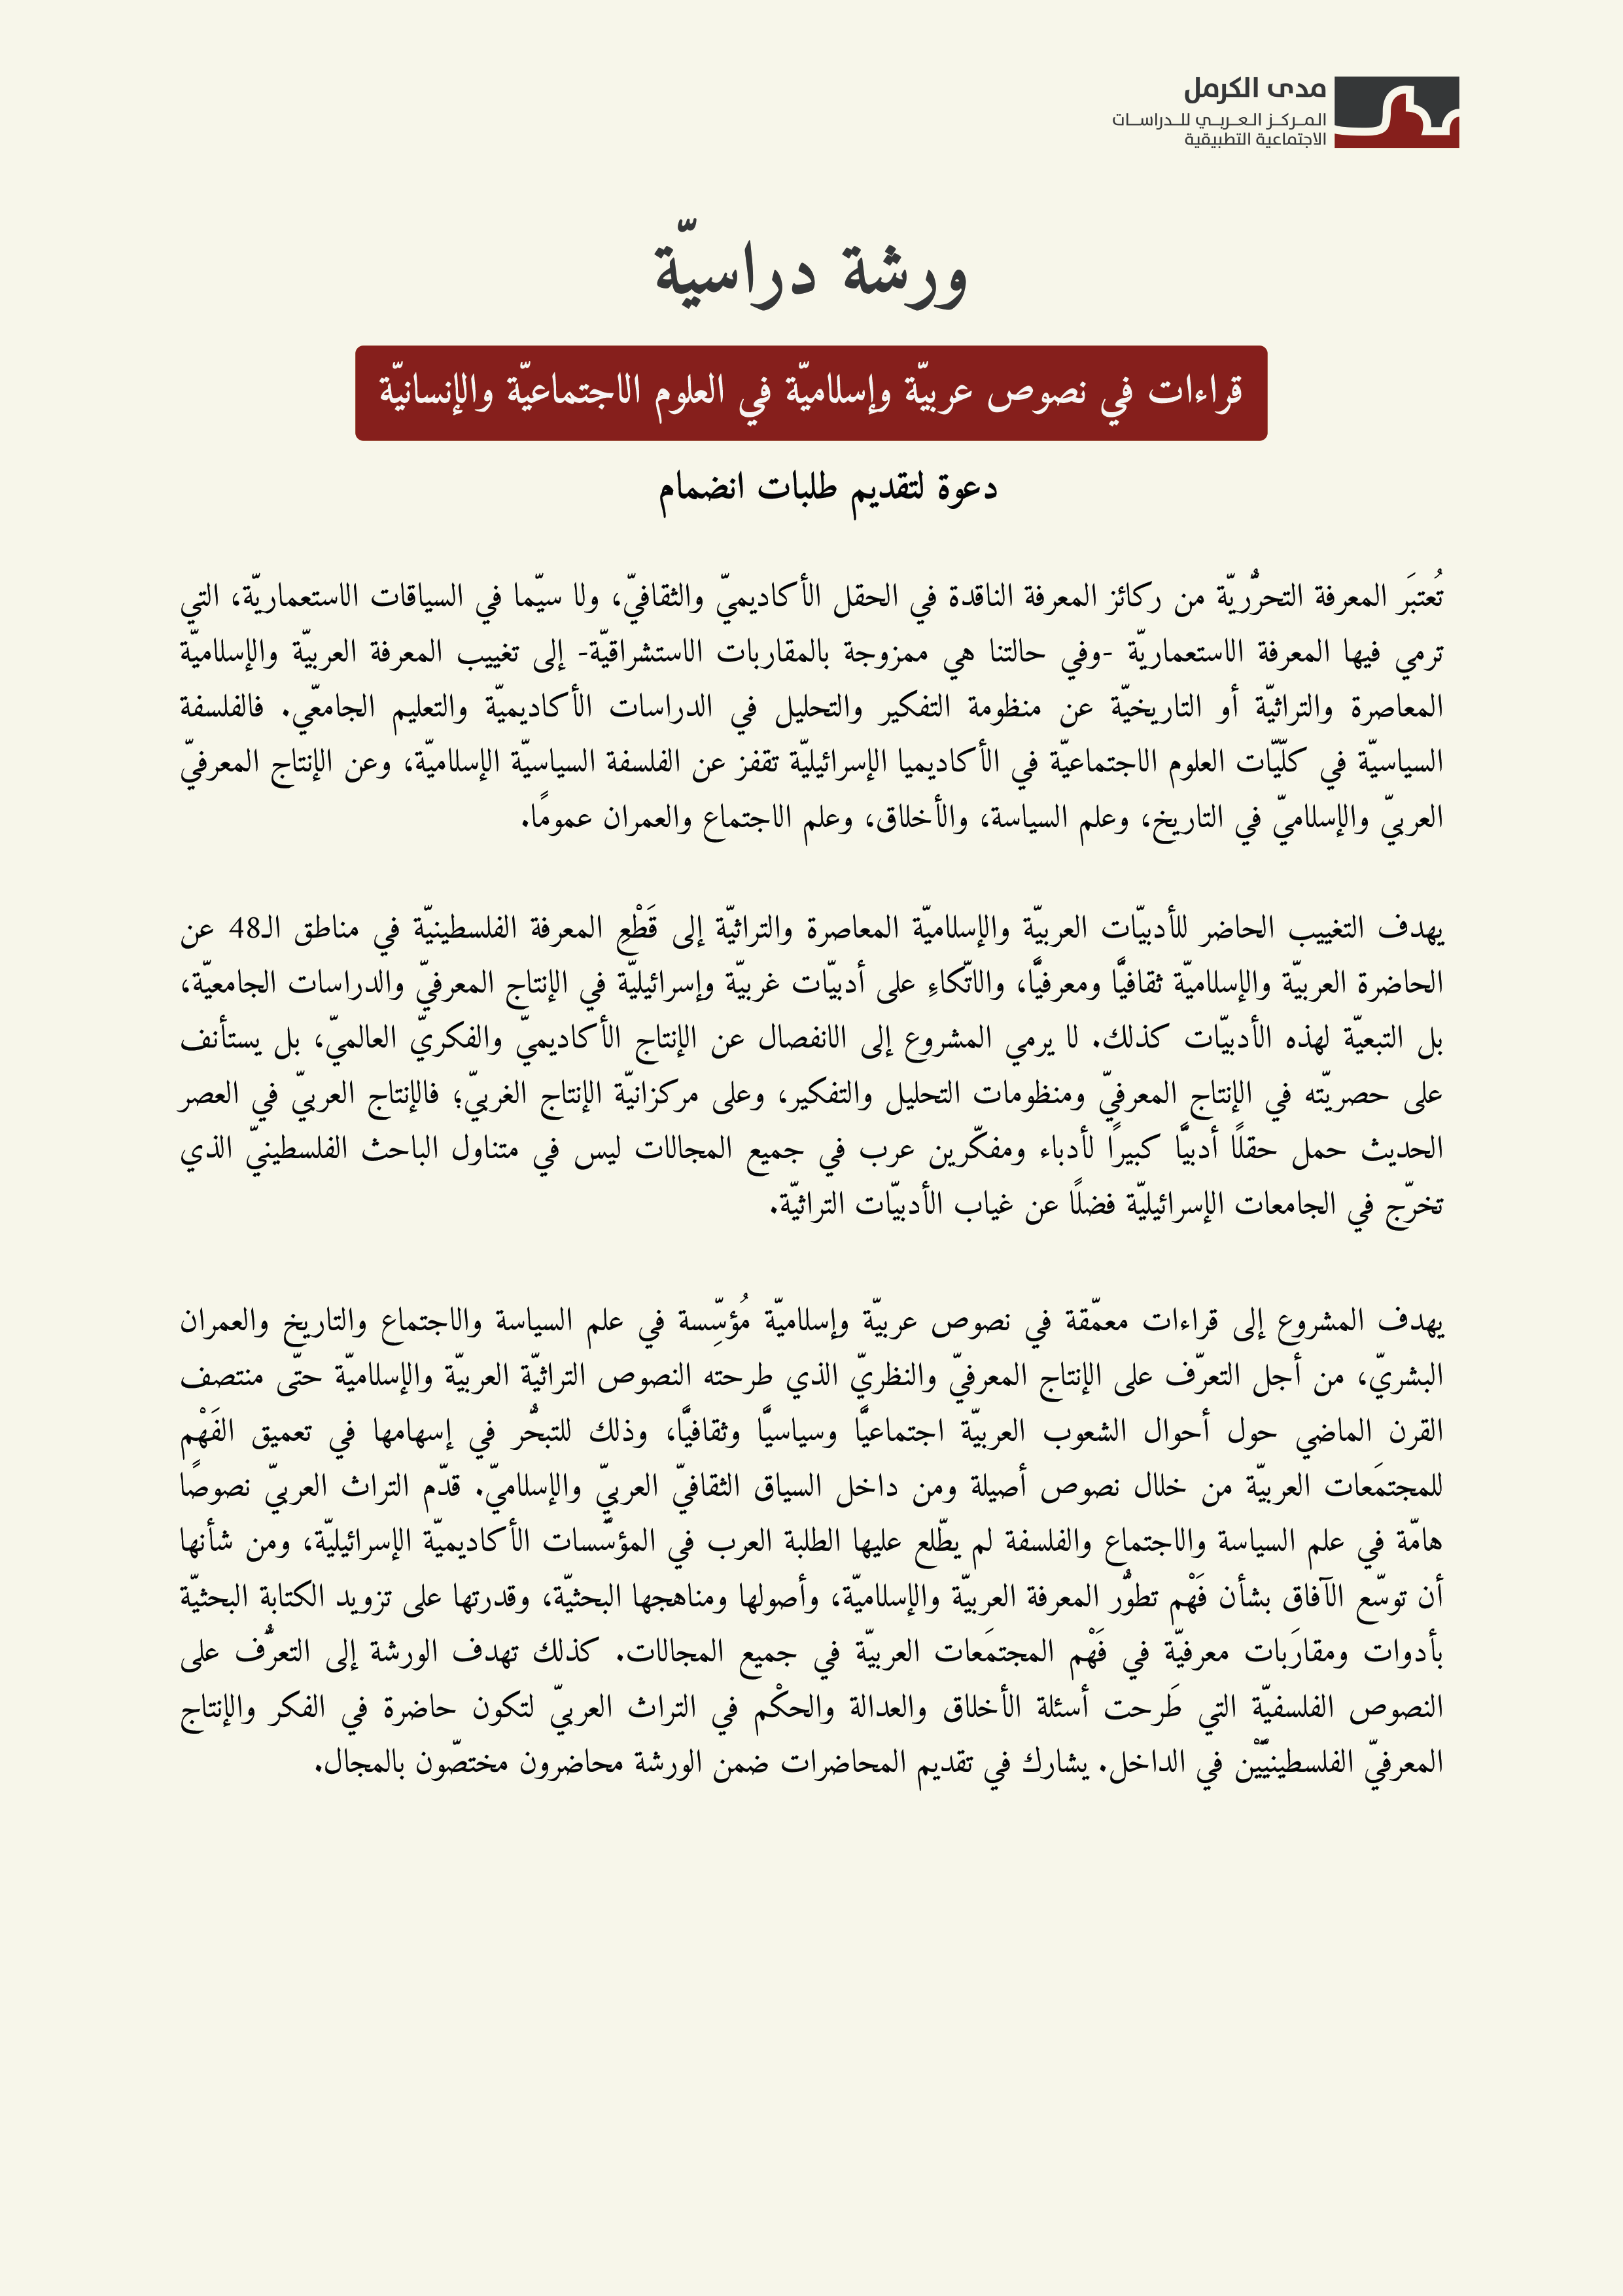 مدى الكرمل
المركز العربي للدراسات
الاجتماعية التطبيقية
ورشة دراسيّة
قراءات في نصوص عربيّة وإسلاميّة في العلوم الاجتماعيّة والإنسانيّة
دعوة لتقديم طلبات انضمام
تُعتبَر المعرفة التحرُّريّة من ركائز المعرفة الناقدة في الحقل الأكاديميّ والثقافيّ، ولا سيّما في السياقات الاستعماريّة، التي
ترمي فيها المعرفة الاستعماريّة -وفي حالتنا هي ممزوجة بالمقاربات الاستشراقيّة- إلى تغييب المعرفة العربيّة والإسلاميّة
المعاصرة والتراثيّة أو التاريخيّة عن منظومة التفكير والتحليل في الدراسات الأكاديميّة والتعليم الجامعّي. فالفلسفة
السياسيّة في كلّيّات العلوم الاجتماعيّة في الأكاديميا الإسرائيليّة تقفز عن الفلسفة السياسيّة الإسلاميّة، وعن الإنتاج المعرفيّ
العربيّ والإسلاميّ في التاريخ، وعلم السياسة، والأخلاق، وعلم الاجتماع والعمران عمومًا.
يهدف التغييب الحاضر للأدبيّات العربيّة والإسلاميّة المعاصرة والتراثيّة إلى قَطْعِ المعرفة الفلسطينيّة في مناطق الـ48 عن
الحاضرة العربيّة والإسلاميّة ثقافيًّا ومعرفيًّا، والاتّكاءِ على أدبيّات غربيّة وإسرائيليّة في الإنتاج المعرفيّ والدراسات الجامعيّة،
بل التبعيّة لهذه الأدبيّات كذلك. لا يرمي المشروع إلى الانفصال عن الإنتاج الأكاديميّ والفكريّ العالميّ، بل يستأنف
على حصريّته في الإنتاج المعرفيّ ومنظومات التحليل والتفكير، وعلى مركزانيّة الإنتاج الغربيّ؛ فالإنتاج العربيّ في العصر
الحديث حمل حقلًا أدبيًّا كبيرًا لأدباء ومفكّرين عرب في جميع المجالات ليس في متناول الباحث الفلسطينيّ الذي
تخرّج في الجامعات الإسرائيليّة فضلًا عن غياب الأدبيّات التراثيّة.
يهدف المشروع إلى قراءات معمّقة في نصوص عربيّة وإسلاميّة مُؤسِّسة في علم السياسة والاجتماع والتاريخ والعمران
البشريّ، من أجل التعرّف على الإنتاج المعرفيّ والنظريّ الذي طرحته النصوص التراثيّة العربيّة والإسلاميّة حتّى منتصف
القرن الماضي حول أحوال الشعوب العربيّة اجتماعيًّا وسياسيًّا وثقافيًّا، وذلك للتبحُّر في إسهامها في تعميق الفَهْم
للمجتمَعات العربيّة من خلال نصوص أصيلة ومن داخل السياق الثقافيّ العربيّ والإسلاميّ. قدّم التراث العربيّ نصوصًا
هامّة في علم السياسة والاجتماع والفلسفة لم يطّلع عليها الطلبة العرب في المؤسّسات الأكاديميّة الإسرائيليّة، ومن شأنها
أن توسّع الآفاق بشأن فَهْم تطوُّر المعرفة العربيّة والإسلاميّة، وأصولها ومناهجها البحثيّة، وقدرتها على تزويد الكتابة البحثيّة
بأدوات ومقارَبات معرفيّة في فَهْم المجتمَعات العربيّة في جميع المجالات. كذلك تهدف الورشة إلى التعرُّف على
النصوص الفلسفيّة التي طَرحت أسئلة الأخلاق والعدالة والحكْم في التراث العربيّ لتكون حاضرة في الفكر والإنتاج
المعرفيّ الفلسطينيَّيْن في الداخل. يشارك في تقديم المحاضرات ضمن الورشة محاضرون مختصّون بالمجال.